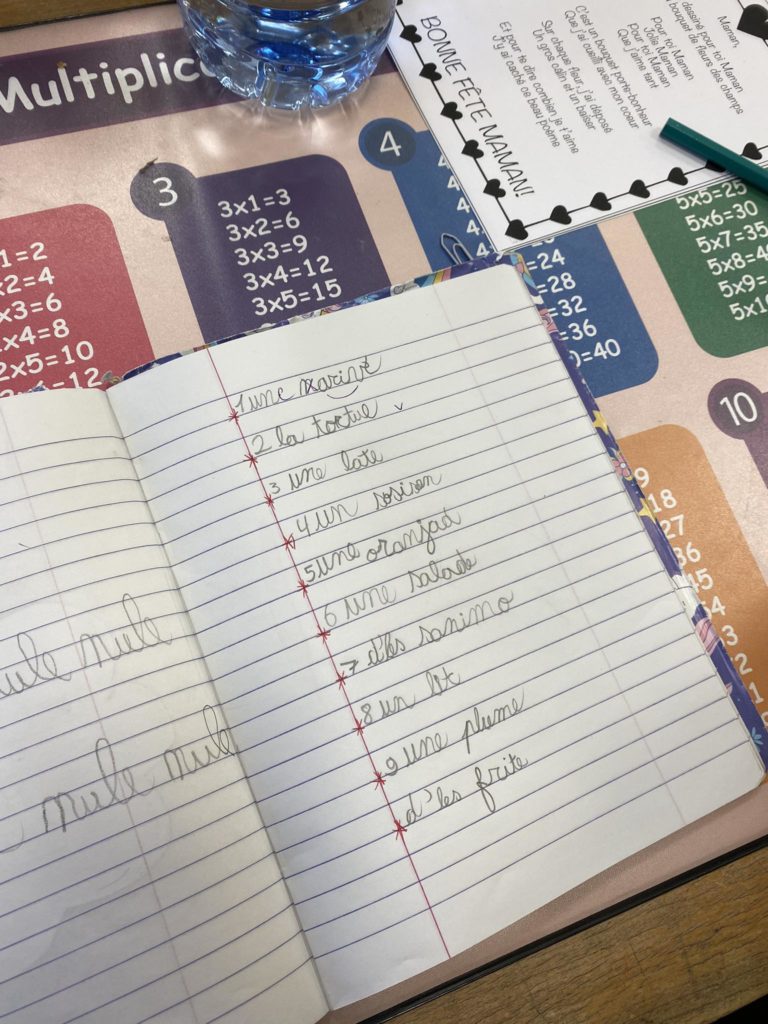 Multiplic
Maman,
dessiné pour toi Maman
bouquet de fleurs des champs
Pour toi Maman
Jolie Maman
Pour toi Maman
Que j'aime tant
C'est un bouquet porte-bonheur
Que j'ai cueilli avec mon coeur
Sur chaque fleur, j'ai déposé
Un gros câlin et un baiser
Et pour te dire combien je t'aime
J'y ai caché ce beau poème
BONNE FÊTE MAMAN!
1=2
x2=4
x3=6
x4=8
2x5=10
=12
3
3x1=3
3x2=6
3x3=9
3x4=12
3x5=15
4
=24
=28
=32
=36
=40
5x5=25
5x6=30
5x7=35
5x8=40
5x9=
5x10
10
9
18
27
36
45
54
3
2
1
1 une
2 la tortue
3 une late
4 un sosison
5 une oranjad
6 une salade
7 d'les sanimo
8 un
9 une plume
d'les frite
nule nule
nule nule